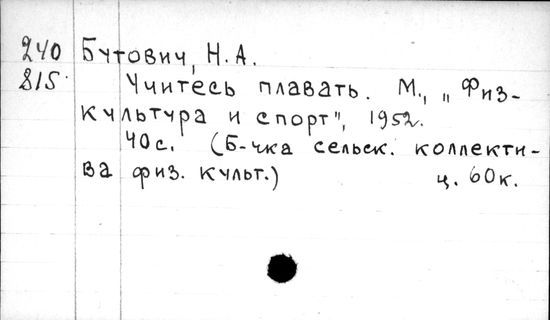 240 Бутович, Н.А.
815 Учитесь плавать. М., „Физ-
культура и спорт", 1952.
40с. (Б-чка сельск. коллекти-
ва физ. культ.) ц. 60к.